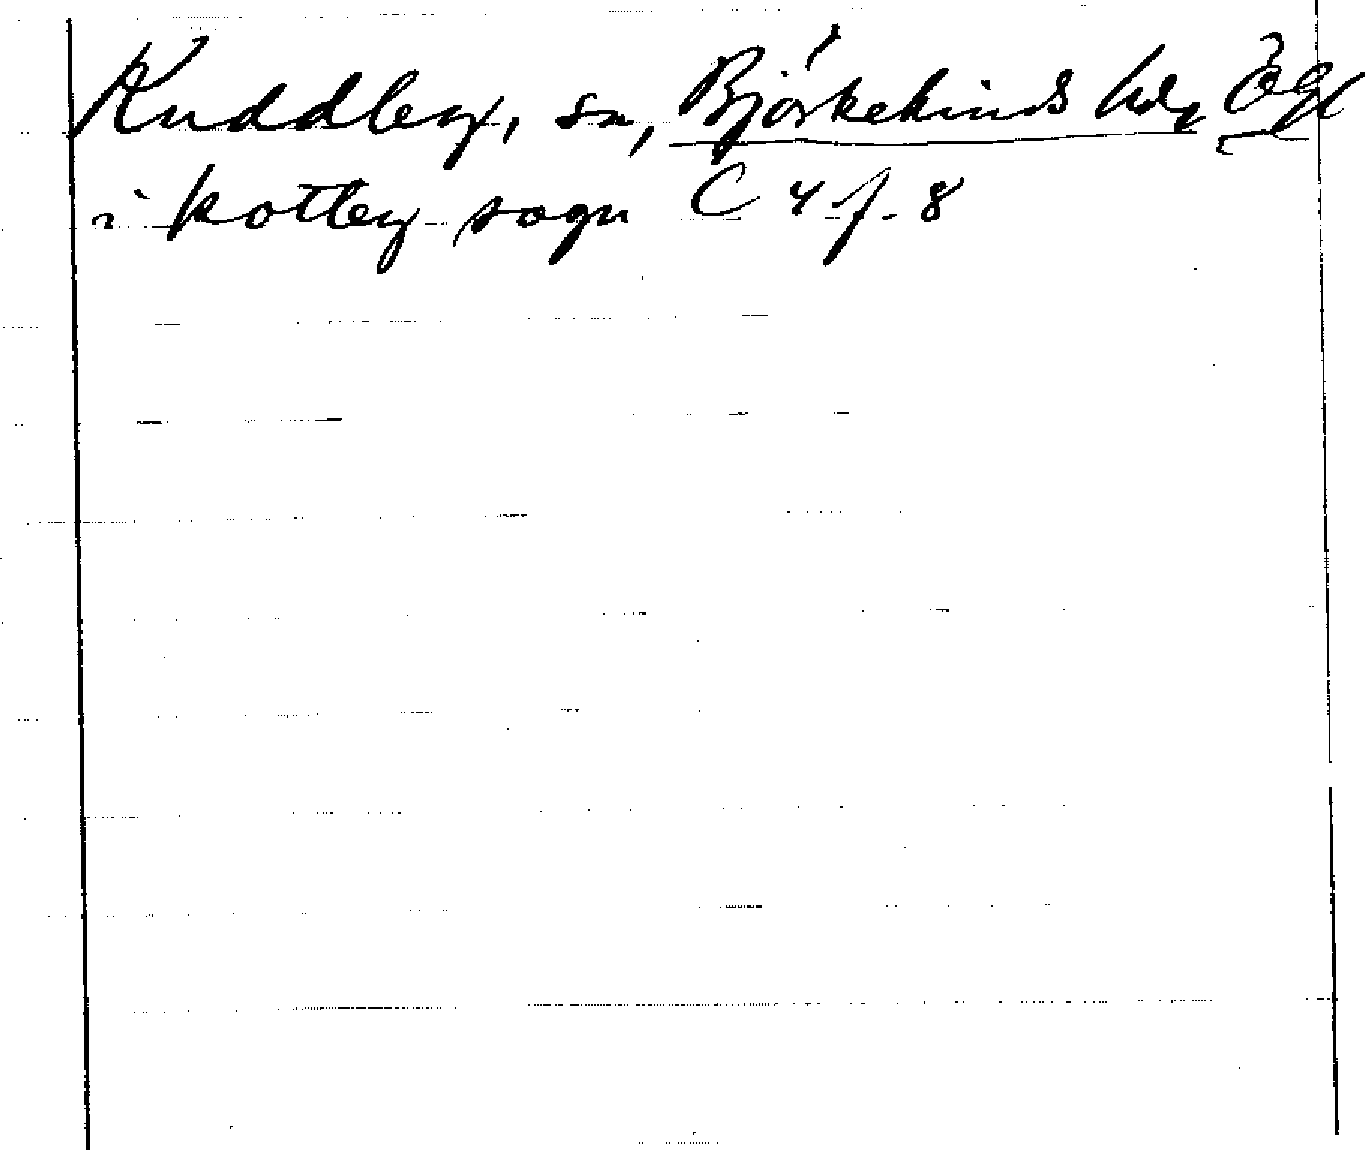 Kuddby, sn, Björkekinds hd, Ögl
i kotby sogn C 4 f. 8